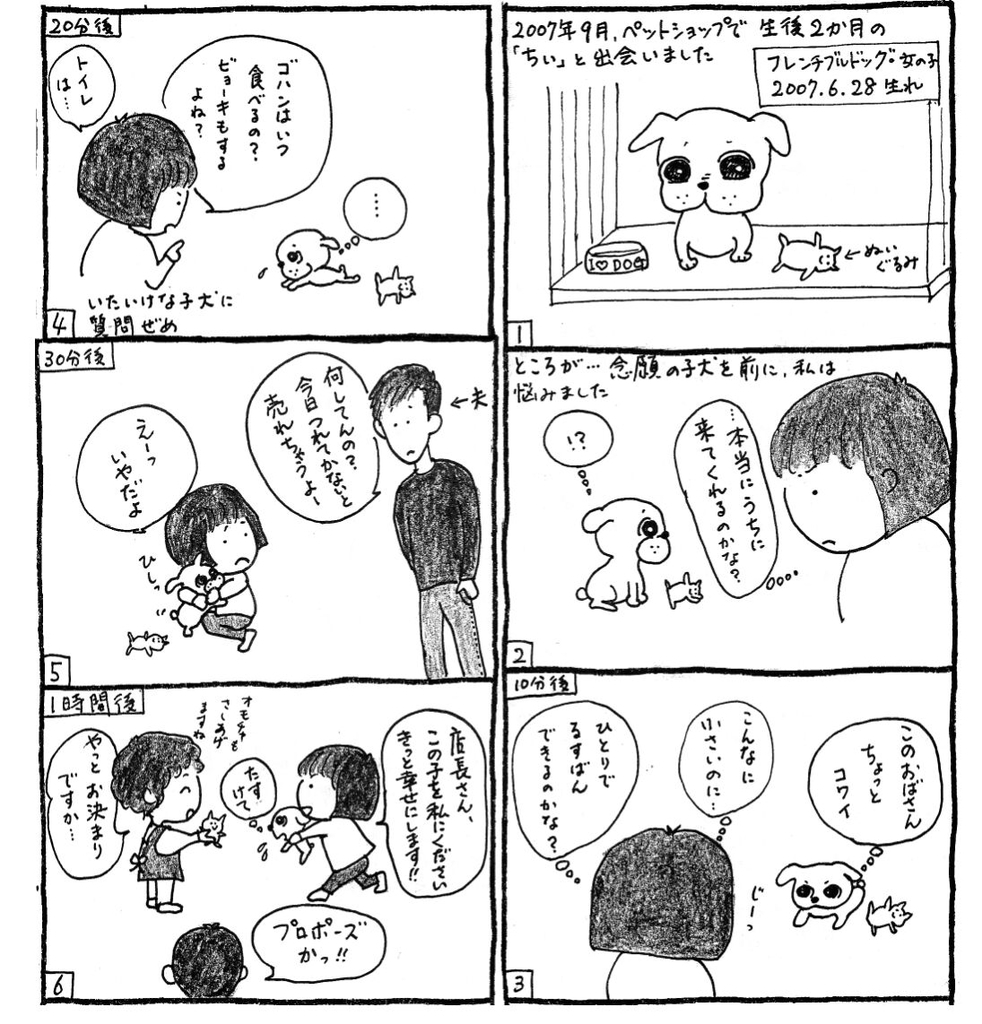 2007年9月,ペットショップで 生後2か月の
「ちぃ」と出会いました
フレンチブルドッグ・女の子
2007.6.28 生れ
I♡DOG
←ぬい
ぐるみ
1
ところが…念願の子犬を前に,私は
悩みました
…本当にうちに
来てくれるのかな?
!?
2
10分後
このおばさん
ちょっと
コワイ
こんなに
小さいのに…
ひとりで
るすばん
できるのかな?
じーっ
3
20分後
ゴハンはいつ
食べるの?
ビョーキもする
よね?
トイレ
は…
……
いたいけな子犬に
質問ぜめ
4
30分後
←夫
何してんの?
今日つれてかないと
売れちゃうよー
えーっ
いやだよ
ひしっ
5
1時間後
店長さん、
この子を私にください
きっと幸せにします!!
たす
けて
オモチャも
さしあげ
ますね
やっとお決まり
ですか…
プロポーズ
かっ!!
6